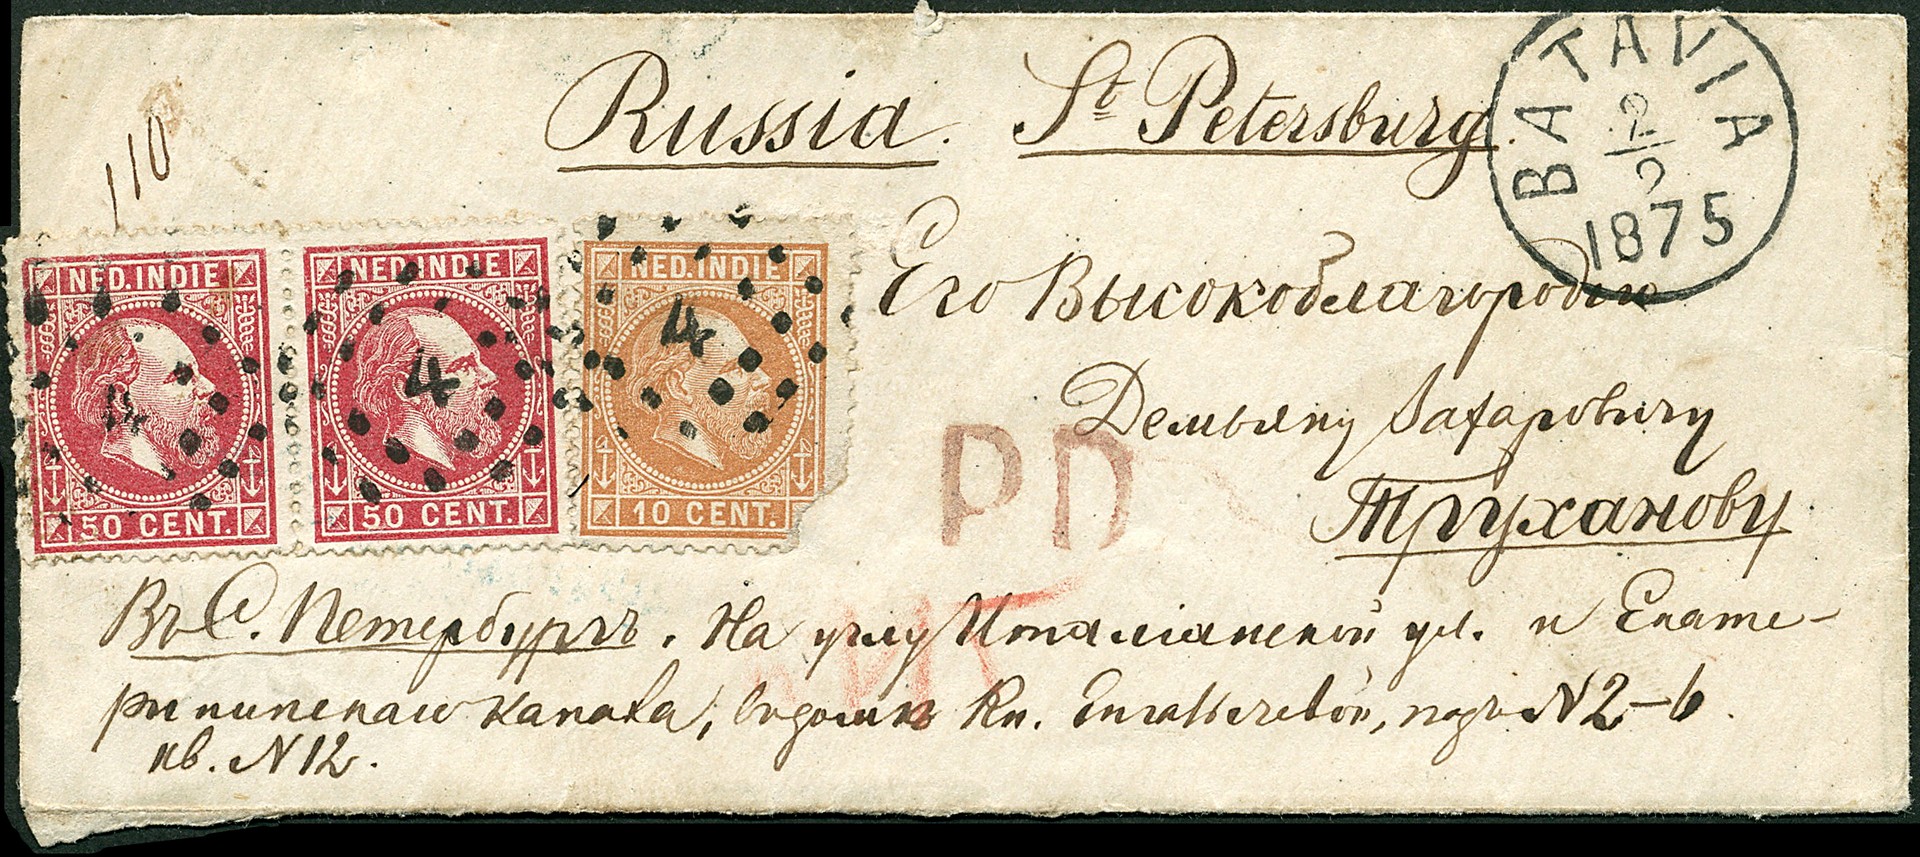 Russia. St Petersburg.
110
BATAVIA
2/9
1875
NED. INDIE
50 CENT.
4
NED. INDIE
50 CENT.
4
NED. INDIE
10 CENT.
4
Его Высокоблагородiю
Демьяну Захаровичу
PD
Труханову
Въ С. Петербургъ. На углу Итальянской ул. и Екате-
рининскаго канала, въ домѣ Кн. подъ N 2-6.
кв. N 12.